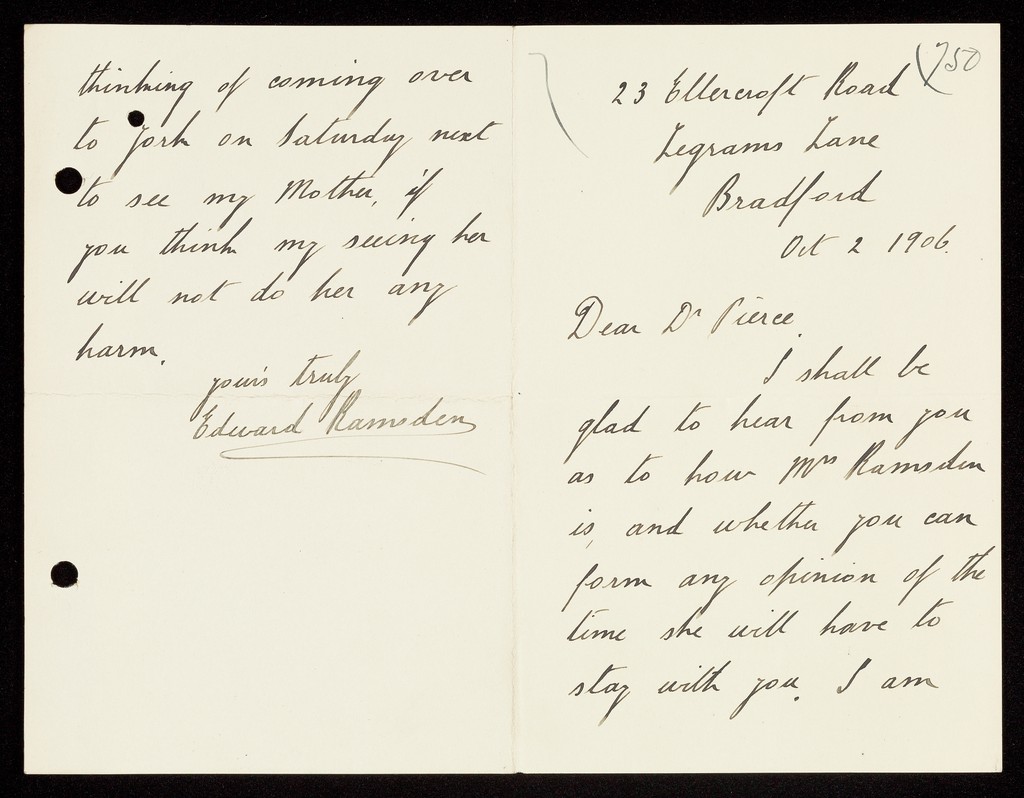 750
23 Ellercroft Road
Legrams Lane
Bradford
Oct 2 1906.
Dear Dr Pierce,
I shall be
glad to hear from you
as to how Mrs Ramsden
is, and whether you can
form any opinion of the
time she will have to
stay with you. I am
thinking of coming over
to York on Saturday next
to see my Mother, if
you think my seeing her
will not do her any
harm.
yours truly
Edward Ramsden